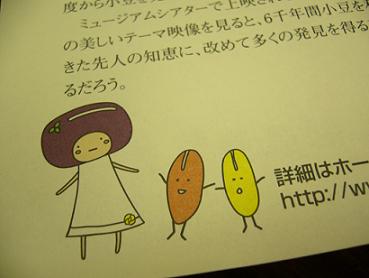 度から小豆を
ミュージアムシアターで上映され
の美しいテーマ映像を見ると、6千年間小豆を
きた先人の知恵に、改めて多くの発見を得る
るだろう。
詳細はホー
http://w